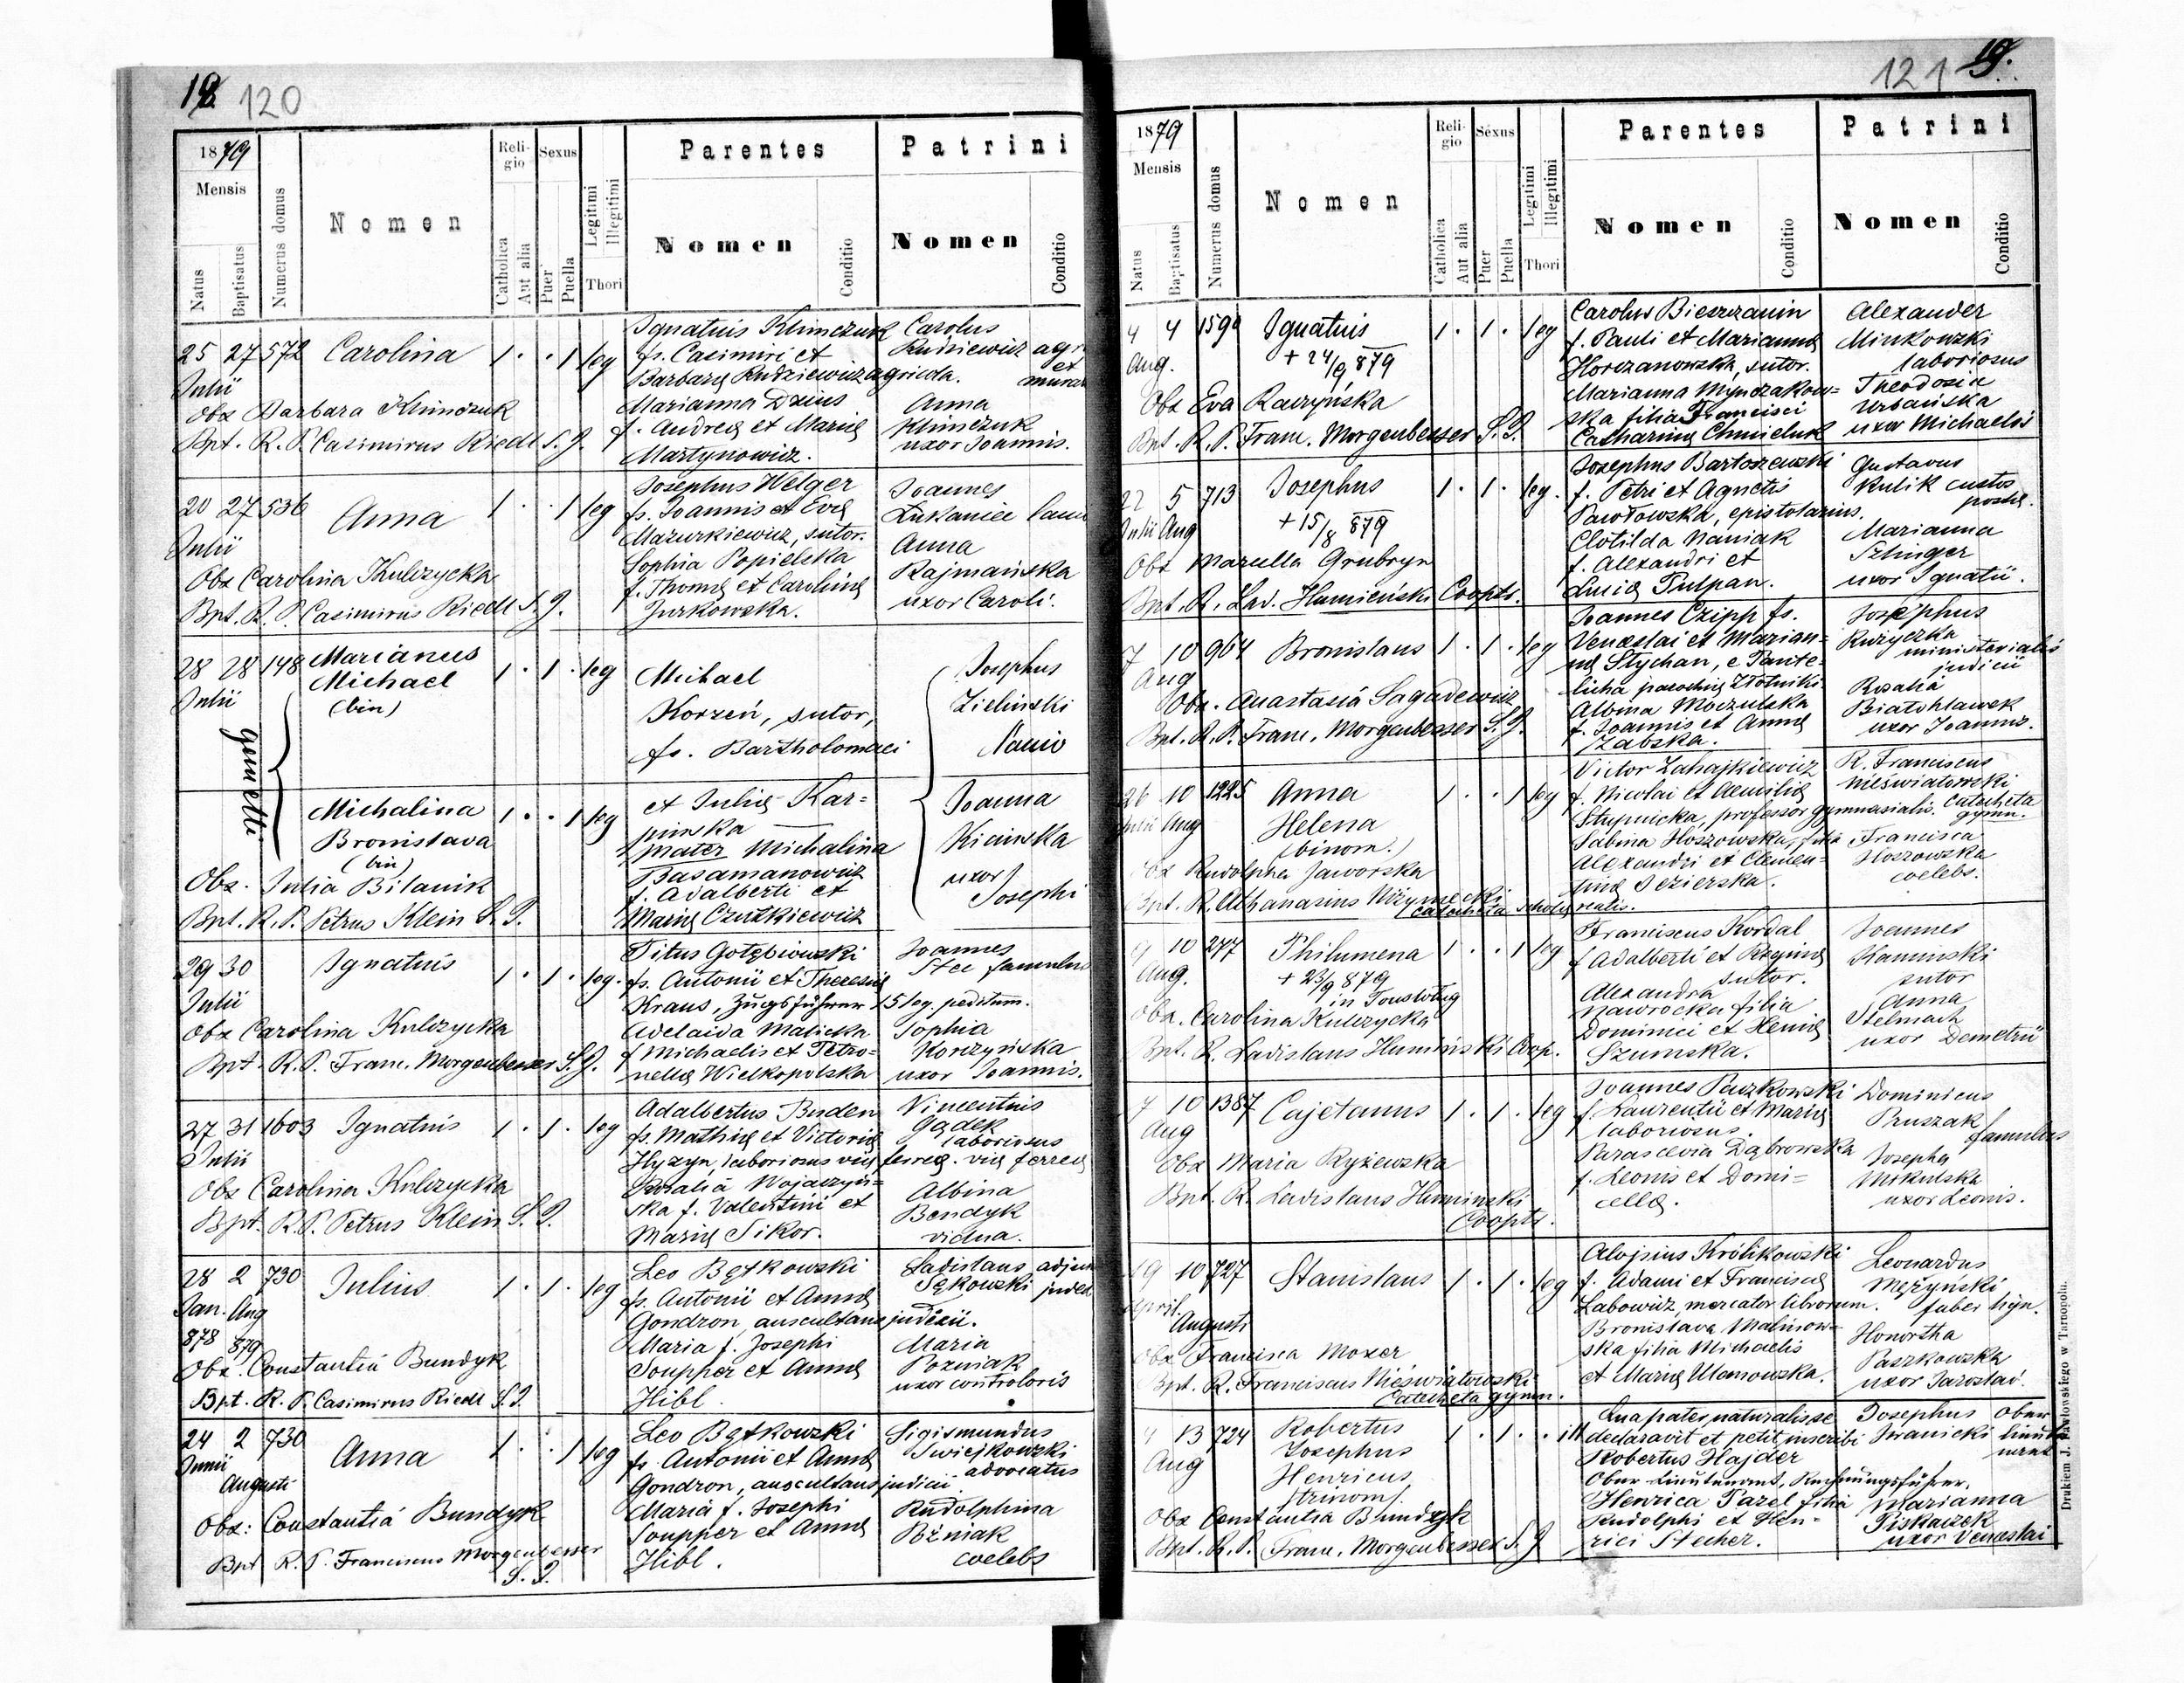 18 120
1879
Mensis
Natus
Baptisatus
Numerus domus
Nomen
Religio
Catholica
Aut alia
Sexus
Puer
Puella
Legitimi
Illegitimi
Thori
Parentes
Nomen
Conditio
Patrini
Nomen
Conditio
25 27 572 Carolina 1 · · 1 leg
Julii
Obx Barbara Klimczuk
Bpt. R. P. Casimirus Riedl S. J.
Ignatius Klimczuk
fs. Casimiri et
Barbarę Rudziewicz agricola.
Marianna Dzius
f. Andreę et Marię
Martynowicz.
Carolus
Rudniewicz agri
et
murar
Anna
Klimczuk
uxor Joannis.
20 27 536 Anna 1 · · 1 leg
Julii
Obx Carolina Kulczycka
Bpt. R. P. Casimirus Riedl S. J.
Josephus Welger
fs. Joannis et Evę
Mazurkiewicz, sutor.
Sophia Popielcka
f. Thomę et Carolinę
Jurkowska.
Joannes
Łukaniec
Anna
Rajmańska
uxor Caroli.
28 28 148 Marianus
Julii
Michael
(bin)
1 · 1 · leg
gemelli
Michael
Korzeń, sutor,
fs. Bartholomaei
Josephus
Zieliński
Michalina
Bronislava
(bin)
1 · · 1 leg
et Julię Kar=
pinska
mater Michalina
Basamanowicz
f. Adalberti et
Marię Czutkiewicz
Joanna
Kicinska
uxor
Josephi
Obx. Julia Bilanik
Bpt. R. P. Petrus Klein S. J.
29 30 Ignatius 1 · 1 · leg.
Julii
Obx Carolina Kulczycka
Bpt. R. P. Franc. Morgenbesser S. J.
Titus Gołębiowski
fs. Antonii et Theresię
Kraus, Zugsführer 15 leg. peditum.
Adelaida Malicka
f Michaelis et Petro=
nellę Wielkopolska
Joannes
Stec famulus
Sophia
Korczyńska
uxor Joannis.
27 31 1603 Ignatius 1 · 1 · leg
Julii
Obx Carolina Kulczycka
Bpt. R. P. Petrus Klein S. J.
Adalbertus Buden
fs. Mathię et Victorię
Hyzyn, laboriosus vię ferreę.
Rosalia Wojaczyń=
ska f. Valentini et
Marię Sikor.
Vincentius
Gądek
laboriosus
vię ferreę
Albina
Bendyk
vidua.
28 2 730 Julius 1 · 1 · leg
Jan. Aug
878 879
Obx. Constantia Bundyk
Bpt. R. P. Casimirus Riedl S. J.
Leo Bętkowski
fs. Antonii et Annę
Gondron, auscultans judicii.
Maria f. Josephi
Soupper et Annę
Hibl.
Ladislaus adjun
Sękowski judic
Maria
Pozniak
uxor controloris
24 2 730 Anna 1 · · 1 leg
Junii
Augusti
Obx: Constantia Bundyk
Bpt R. P. Franciscus Morgenbesser
S. J.
Leo Bętkowski
fs. Antonii et Annę
Gondron, auscultans judicii
Maria f. Josephi
Soupper et Annę
Hibl.
Sigismundus
Swiejkowski
advocatus
Rudolphina
coelebs
121 19.
1879
Mensis
Natus
Baptisatus
Numerus domus
Nomen
Religio
Catholica
Aut alia
Sexus
Puer
Puella
Legitimi
Illegitimi
Thori
Parentes
Nomen
Conditio
Patrini
Nomen
Conditio
4 4 1590 Ignatius 1 · 1 · leg
Aug. + 24/9 879
Obx Eva Raczyńska
Bpt. R. P. Franc. Morgenbesser S. J.
Carolus Bieszczanin
f. Pauli et Mariannę
Horczanowska, sutor.
Marianna Mynczakow=
ska filia Francisci
Catharinę Chmieluk
Alexander
Minkowski
laboriosus
Theodosia
Urbańska
uxor Michaelis
22 5 713 Josephus 1 · 1 · leg.
Julii Aug + 15/8 879
Obx Marcella Grubryn
Bpt. R. Lad. Humieński Coopts.
Josephus Bartoszewski
f. Petri et Agnetis
Pawłowska, epistolarius.
Clotilda Naniak
f. Alexandri et
Lucię Pulpan.
Gustavus
Kulik custos
postę.
Marianna
Szlinger
uxor Ignatii.
7 10 964 Bronislaus 1 · 1 · leg
Aug
Obx. Anastasia Sagadewicz
Bpt. R. P. Franc. Morgenbesser S. J.
Joannes Czipp fs.
Venceslai et Marian=
nę Stychan, e Pante=
licha parochię Złotniki.
Albina Moczulska
f. Joannis et Annę
Zabska.
Josephus
Ruzyczka
ministerialis
judicii
Rosalia
Białohlawek
uxor Joannis.
26 10 1225 Anna 1 · · 1 leg
Julii Aug Helena
(binom.)
Obx Rudolpha Jaworska
Bpt. R. Athanasius catecheta scholę realis.
Victor Zahajkiewicz
f. Nicolai et Aemilię
Stupnicka, professor gymnasialis.
Sabina Hoszowska, filia
Alexandri et Clemen=
tinę Jezierska.
R. Franciscus
Nieświatowski
catecheta
gymn.
Francisca
Hoszowska
coelebs.
9 10 247 Philumena 1 · · 1 leg
Aug. + 23/9 879
in Toustoług
Obx. Carolina Kulczycka
Bpt. R. Ladislaus Humiński Coop.
Franciscus Kordal
f Adalberti et Reginę
sutor.
Alexandra
Nawrocka filia
Dominici et Henię
Szumska.
Joannes
Kaminski
sutor
Anna
Stelmach
uxor Demetrii
7 10 1387 Cajetanus 1 · 1 · leg
Aug
Obx Maria Ryżewska
Bpt. R. Ladislaus Huminski
Coopts.
Joannes Paczkowski
f. Laurentii et Marię
laboriosus.
Parascevia Dąbrowska
f. Leonis et Domi=
cellę.
Dominicus
Pruszak
famulus
Josepha
Mikulska
uxor Leonis.
19 10 727 Stanislaus 1 · 1 · leg
April.
Augusti
Obx Francisca Moxer
Bpt. R. Franciscus Nieświatowski
Catecheta gymn.
Aloysius Królikowski
f. Adami et Franciscę
Łabowicz, mercator librorum.
Bronislava Malinow=
ska filia Michaelis
et Marię Ulanowska.
Leonardus
Mężyński
faber lign.
Honortha
Paszkowska
uxor Jaroslai.
4 13 724 Robertus 1 · 1 · · ill
Aug Josephus
Henricus
(trinom).
Obx Constantia Bundyk
Bpt. R. P. Franc. Morgenbesser S. J
Qua pater naturalis se
declaravit et petit inscribi
Robertus Hajder
Ober-Lieutenant, Rechnungsführer.
Henrica Pazel filia
Rudolphi et Hen=
rici Stecher.
Josephus Ober
Iwanicki
Marianna
Piskaczek
uxor Venceslai
Drukiem J. Pawłowskiego w Tarnopolu.